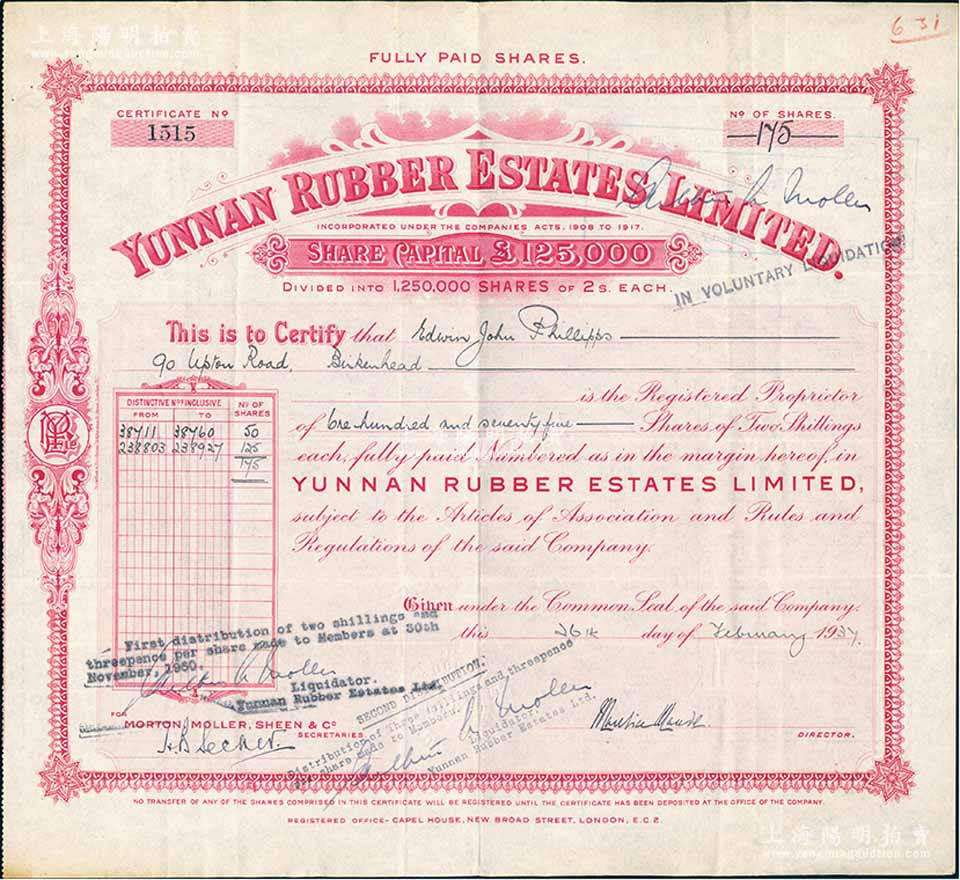 上海陽明拍賣
www.yangmingauction.com
6 31
FULLY PAID SHARES.
CERTIFICATE Nº
1515
Nº OF SHARES.
175
YUNNAN RUBBER ESTATES, LIMITED.
INCORPORATED UNDER THE COMPANIES ACTS, 1908 TO 1917.
SHARE CAPITAL £125,000
DIVIDED INTO 1,250,000 SHARES OF 2 S. EACH.
IN VOLUNTARY LIQUIDATION
This is to Certify that Edwin John Phillipps
90 Upton Road, Birkenhead
DISTINCTIVE Nºs INCLUSIVE
FROM TO
Nº OF SHARES
38411 38460 50
238803 238927 125
175
is the Registered Proprietor
of One hundred and seventy five Shares of Two Shillings
each, fully paid Numbered as in the margin hereof, in
YUNNAN RUBBER ESTATES LIMITED,
subject to the Articles of Association and Rules and
Regulations of the said Company.
Given under the Common Seal of the said Company.
this 26th day of February 1937.
First distribution of two shillings and
threepence per share made to Members at 30th
November, 1960.
Liquidator.
Yunnan Rubber Estates Ltd.
SECOND DISTRIBUTION.
Distribution of Three shillings and threepence
per share made to Members
Liquidator.
Yunnan Rubber Estates Ltd.
FOR
MORTON, MOLLER, SHEEN & Cº
SECRETARIES.
DIRECTOR.
NO TRANSFER OF ANY OF THE SHARES COMPRISED IN THIS CERTIFICATE WILL BE REGISTERED UNTIL THE CERTIFICATE HAS BEEN DEPOSITED AT THE OFFICE OF THE COMPANY.
REGISTERED OFFICE - CAPEL HOUSE, NEW BROAD STREET, LONDON, E.C.2.
上海陽明拍賣
www.yangmingauction.com